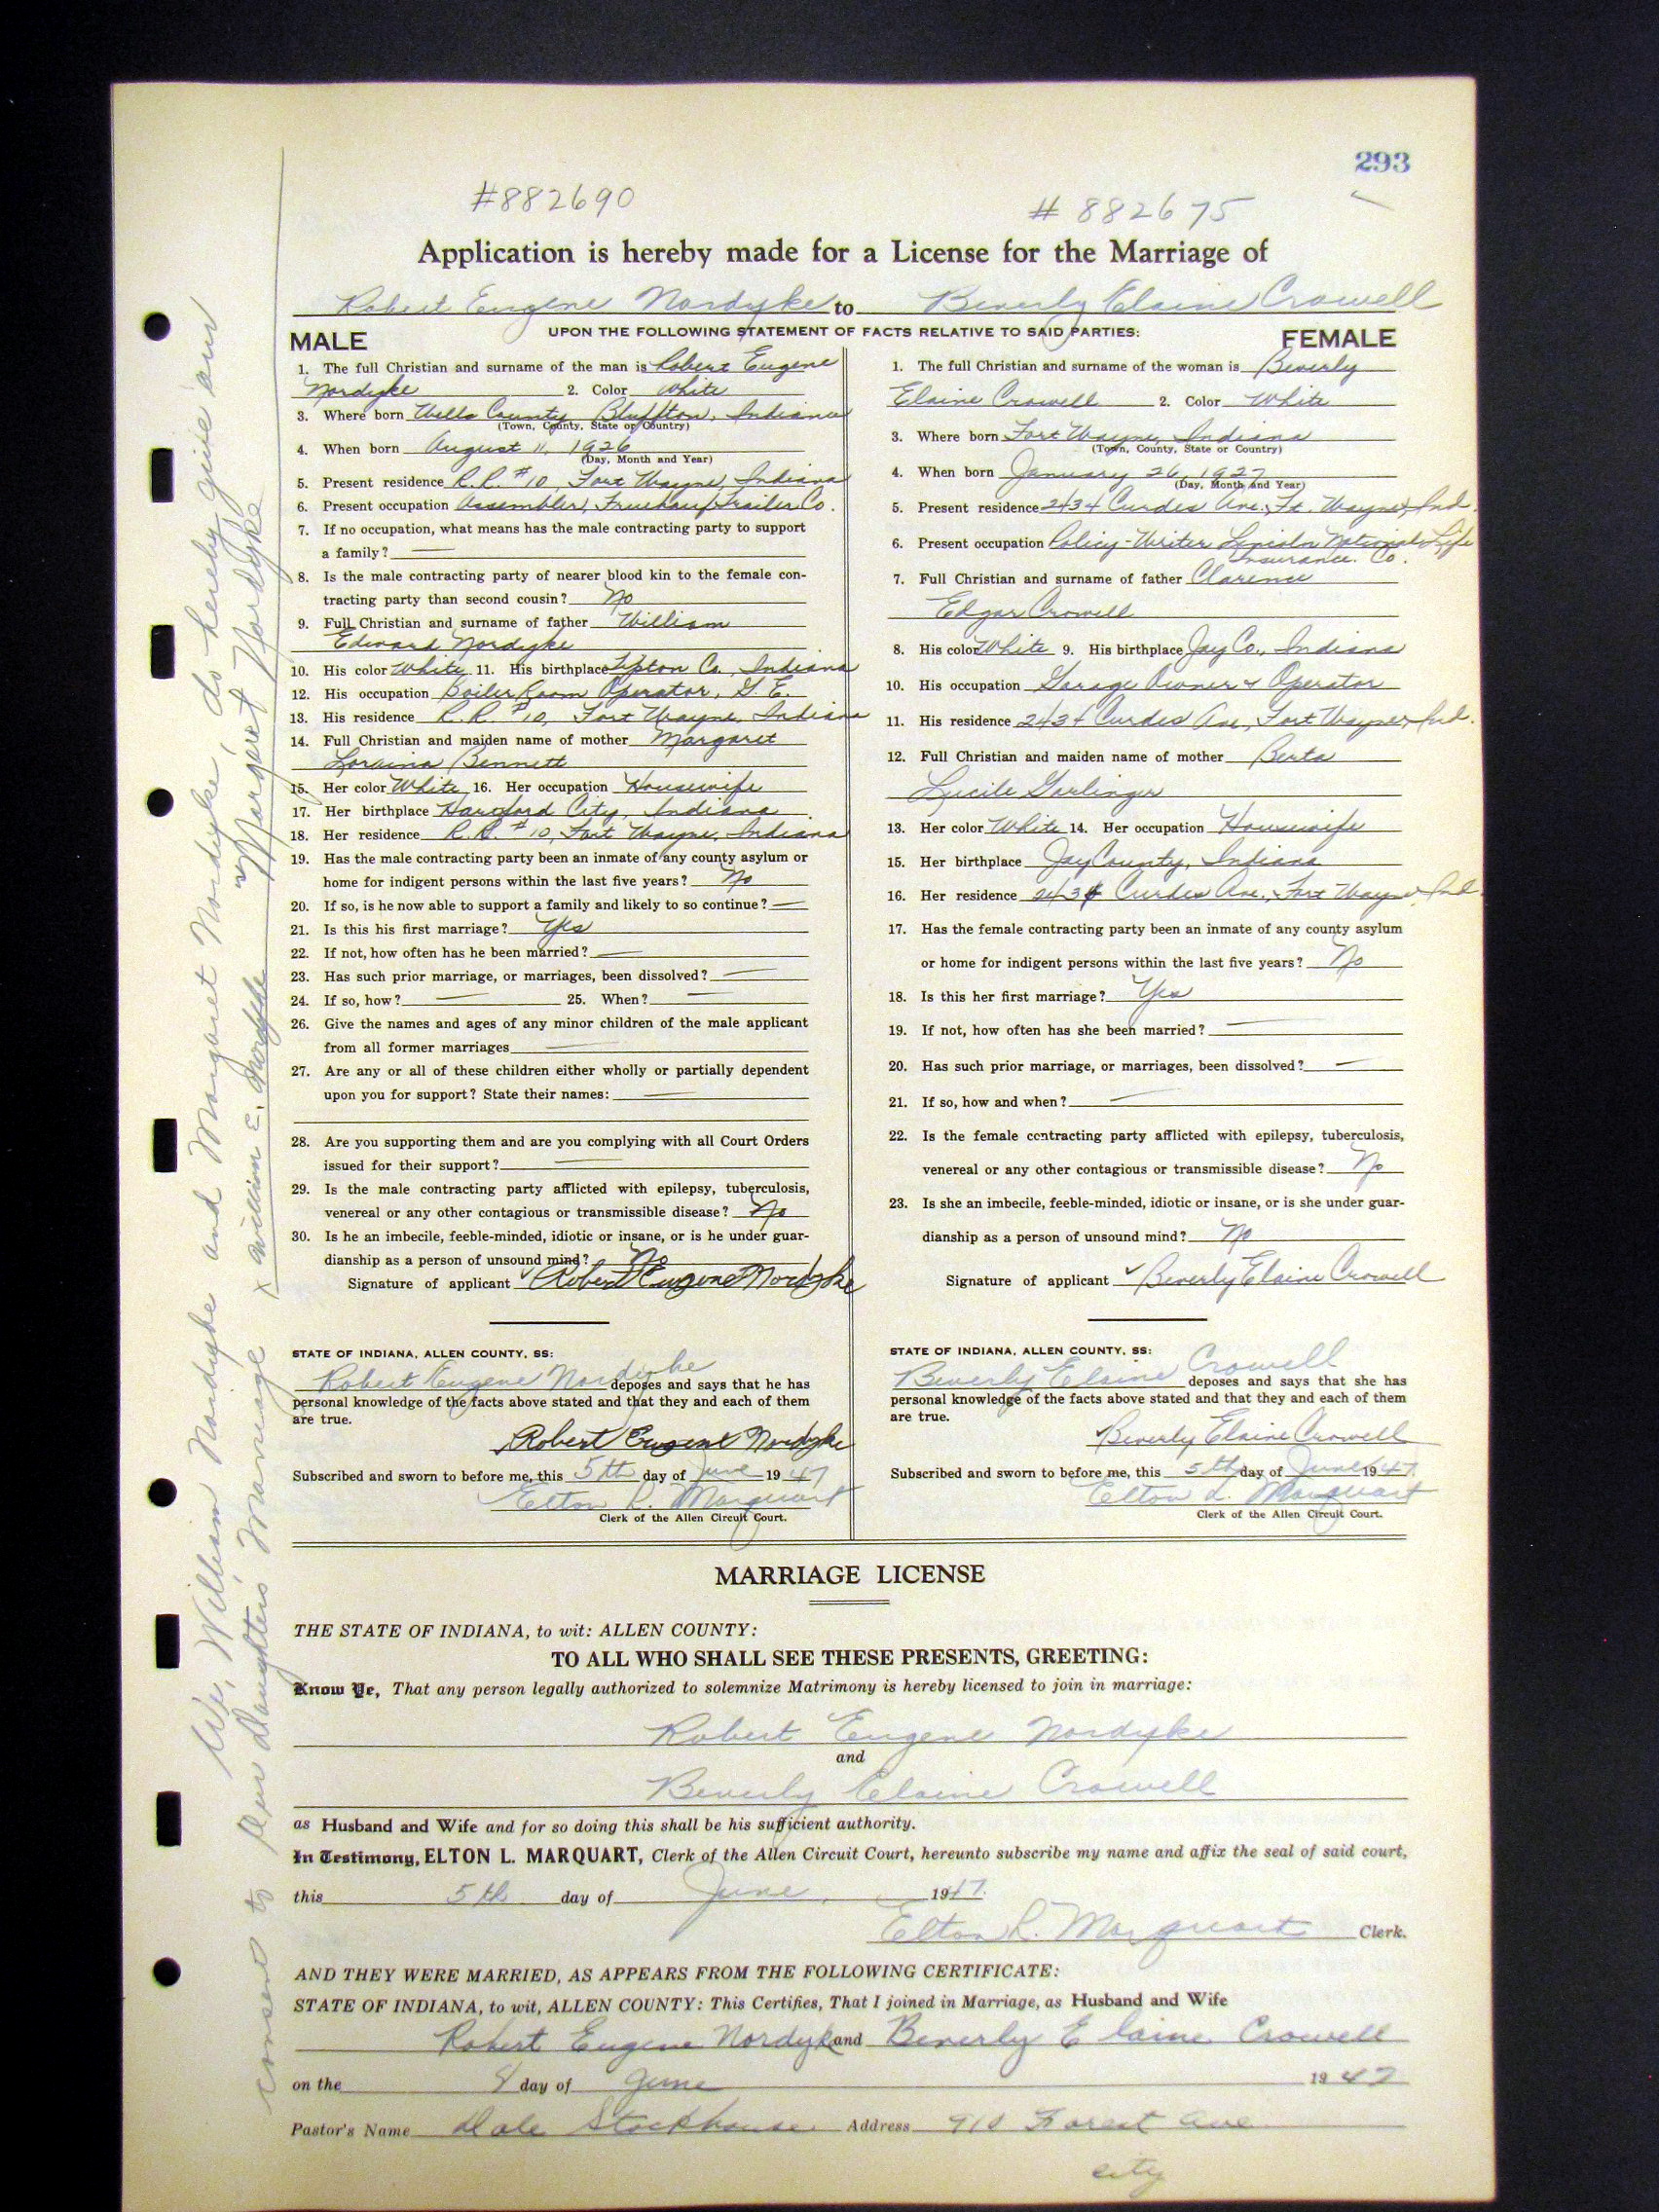 293
#882690
# 882675
Application is hereby made for a License for the Marriage of
Robert Eugene Nordyke to Beverly Elaine Crowell
UPON THE FOLLOWING STATEMENT OF FACTS RELATIVE TO SAID PARTIES:
MALE
1. The full Christian and surname of the man is Robert Eugene
Nordyke 2. Color White
3. Where born Wells County Bluffton, Indiana
(Town, County, State or Country)
4. When born August 11, 1926
(Day, Month and Year)
5. Present residence R.R. #10, Fort Wayne, Indiana
6. Present occupation Assembler, Fruehauf Trailer Co.
7. If no occupation, what means has the male contracting party to support
a family? —
8. Is the male contracting party of nearer blood kin to the female con-
tracting party than second cousin? No
9. Full Christian and surname of father William
Edward Nordyke
10. His color White 11. His birthplace Tipton Co., Indiana
12. His occupation Boiler Room Operator, G.E.
13. His residence R.R. #10, Fort Wayne, Indiana
14. Full Christian and maiden name of mother Margaret
Loraina Bennett
15. Her color White 16. Her occupation Housewife
17. Her birthplace Hartford City, Indiana
18. Her residence R.R. #10, Fort Wayne, Indiana
19. Has the male contracting party been an inmate of any county asylum or
home for indigent persons within the last five years? No
20. If so, is he now able to support a family and likely to so continue? —
21. Is this his first marriage? Yes
22. If not, how often has he been married? —
23. Has such prior marriage, or marriages, been dissolved? —
24. If so, how? — 25. When? —
26. Give the names and ages of any minor children of the male applicant
from all former marriages —
27. Are any or all of these children either wholly or partially dependent
upon you for support? State their names: —
28. Are you supporting them and are you complying with all Court Orders
issued for their support? —
29. Is the male contracting party afflicted with epilepsy, tuberculosis,
venereal or any other contagious or transmissible disease? No
30. Is he an imbecile, feeble-minded, idiotic or insane, or is he under guar-
dianship as a person of unsound mind? No
Signature of applicant Robert Eugene Nordyke
STATE OF INDIANA, ALLEN COUNTY, SS:
Robert Eugene Nordyke deposes and says that he has
personal knowledge of the facts above stated and that they and each of them
are true.
Robert Eugene Nordyke
Subscribed and sworn to before me, this 5th day of June 1947
Elton L. Marquart
Clerk of the Allen Circuit Court.
FEMALE
1. The full Christian and surname of the woman is Beverly
Elaine Crowell 2. Color White
3. Where born Fort Wayne, Indiana
(Town, County, State or Country)
4. When born January 26, 1927
(Day, Month and Year)
5. Present residence 2434 Curdes Ave., Ft. Wayne, Ind.
6. Present occupation Policy-Writer Lincoln National Life
Insurance Co.
7. Full Christian and surname of father Clarence
Edgar Crowell
8. His color White 9. His birthplace Jay Co., Indiana
10. His occupation Garage Owner & Operator
11. His residence 2434 Curdes Ave, Fort Wayne, Ind.
12. Full Christian and maiden name of mother Berta
Lucile Garlinger
13. Her color White 14. Her occupation Housewife
15. Her birthplace Jay County, Indiana
16. Her residence 2434 Curdes Ave., Fort Wayne, Ind.
17. Has the female contracting party been an inmate of any county asylum
or home for indigent persons within the last five years? No
18. Is this her first marriage? Yes
19. If not, how often has she been married? —
20. Has such prior marriage, or marriages, been dissolved? —
21. If so, how and when? —
22. Is the female contracting party afflicted with epilepsy, tuberculosis,
venereal or any other contagious or transmissible disease? No
23. Is she an imbecile, feeble-minded, idiotic or insane, or is she under guar-
dianship as a person of unsound mind? No
Signature of applicant Beverly Elaine Crowell
STATE OF INDIANA, ALLEN COUNTY, SS:
Beverly Elaine Crowell deposes and says that she has
personal knowledge of the facts above stated and that they and each of them
are true.
Beverly Elaine Crowell
Subscribed and sworn to before me, this 5th day of June 1947
Elton L. Marquart
Clerk of the Allen Circuit Court.
MARRIAGE LICENSE
THE STATE OF INDIANA, to wit: ALLEN COUNTY:
TO ALL WHO SHALL SEE THESE PRESENTS, GREETING:
Know Ye, That any person legally authorized to solemnize Matrimony is hereby licensed to join in marriage:
Robert Eugene Nordyke
and
Beverly Elaine Crowell
as Husband and Wife and for so doing this shall be his sufficient authority.
In Testimony, ELTON L. MARQUART, Clerk of the Allen Circuit Court, hereunto subscribe my name and affix the seal of said court,
this 5th day of June, 1947.
Elton L. Marquart Clerk.
AND THEY WERE MARRIED, AS APPEARS FROM THE FOLLOWING CERTIFICATE:
STATE OF INDIANA, to wit, ALLEN COUNTY: This Certifies, That I joined in Marriage, as Husband and Wife
Robert Eugene Nordyke and Beverly Elaine Crowell
on the 8 day of June 1947
Pastor's Name Dale Stockhouse Address 910 Forest Ave
city
We, William Nordyke and Margaret Nordyke, do hereby give our
consent to our Daughters Marriage
x William E. Nordyke
Margaret Nordyke